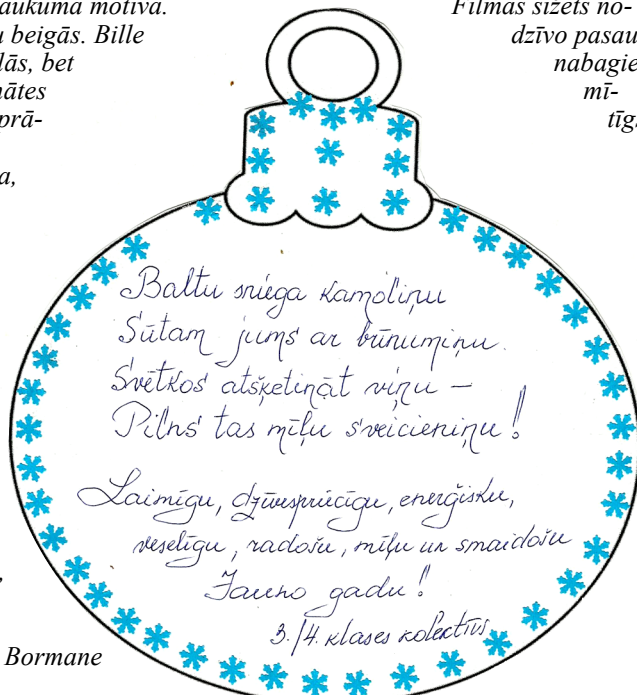 aukuma motīvā.
u beigās. Bille
lās, bet
nātes
prā-
a,
Filmas sižets no-
dzīvo pasau
nabagie
mī-
tīgs
Baltu sniega kamoliņu
Sūtam jums ar brīnumiņu.
Svētkos atšķetināt viņu –
Pilns tas mīļu sveicieniņu!
Laimīgu, dzīvespriecīgu, enerģisku,
veselīgu, radošu, mīļu un smaidošu
Jauno gadu!
3./4. klases kolektīvs
,
Bormane